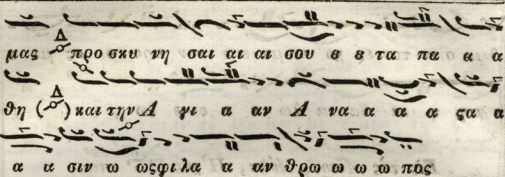 μας προ σκυ νη σαι αι αι σου ȣ ȣ τα πα α α
θη ( ) και την Α γι α αν Α να α α α ςα α
α α σιν ω ωςφιλα α αν θρω ω ω ω πος